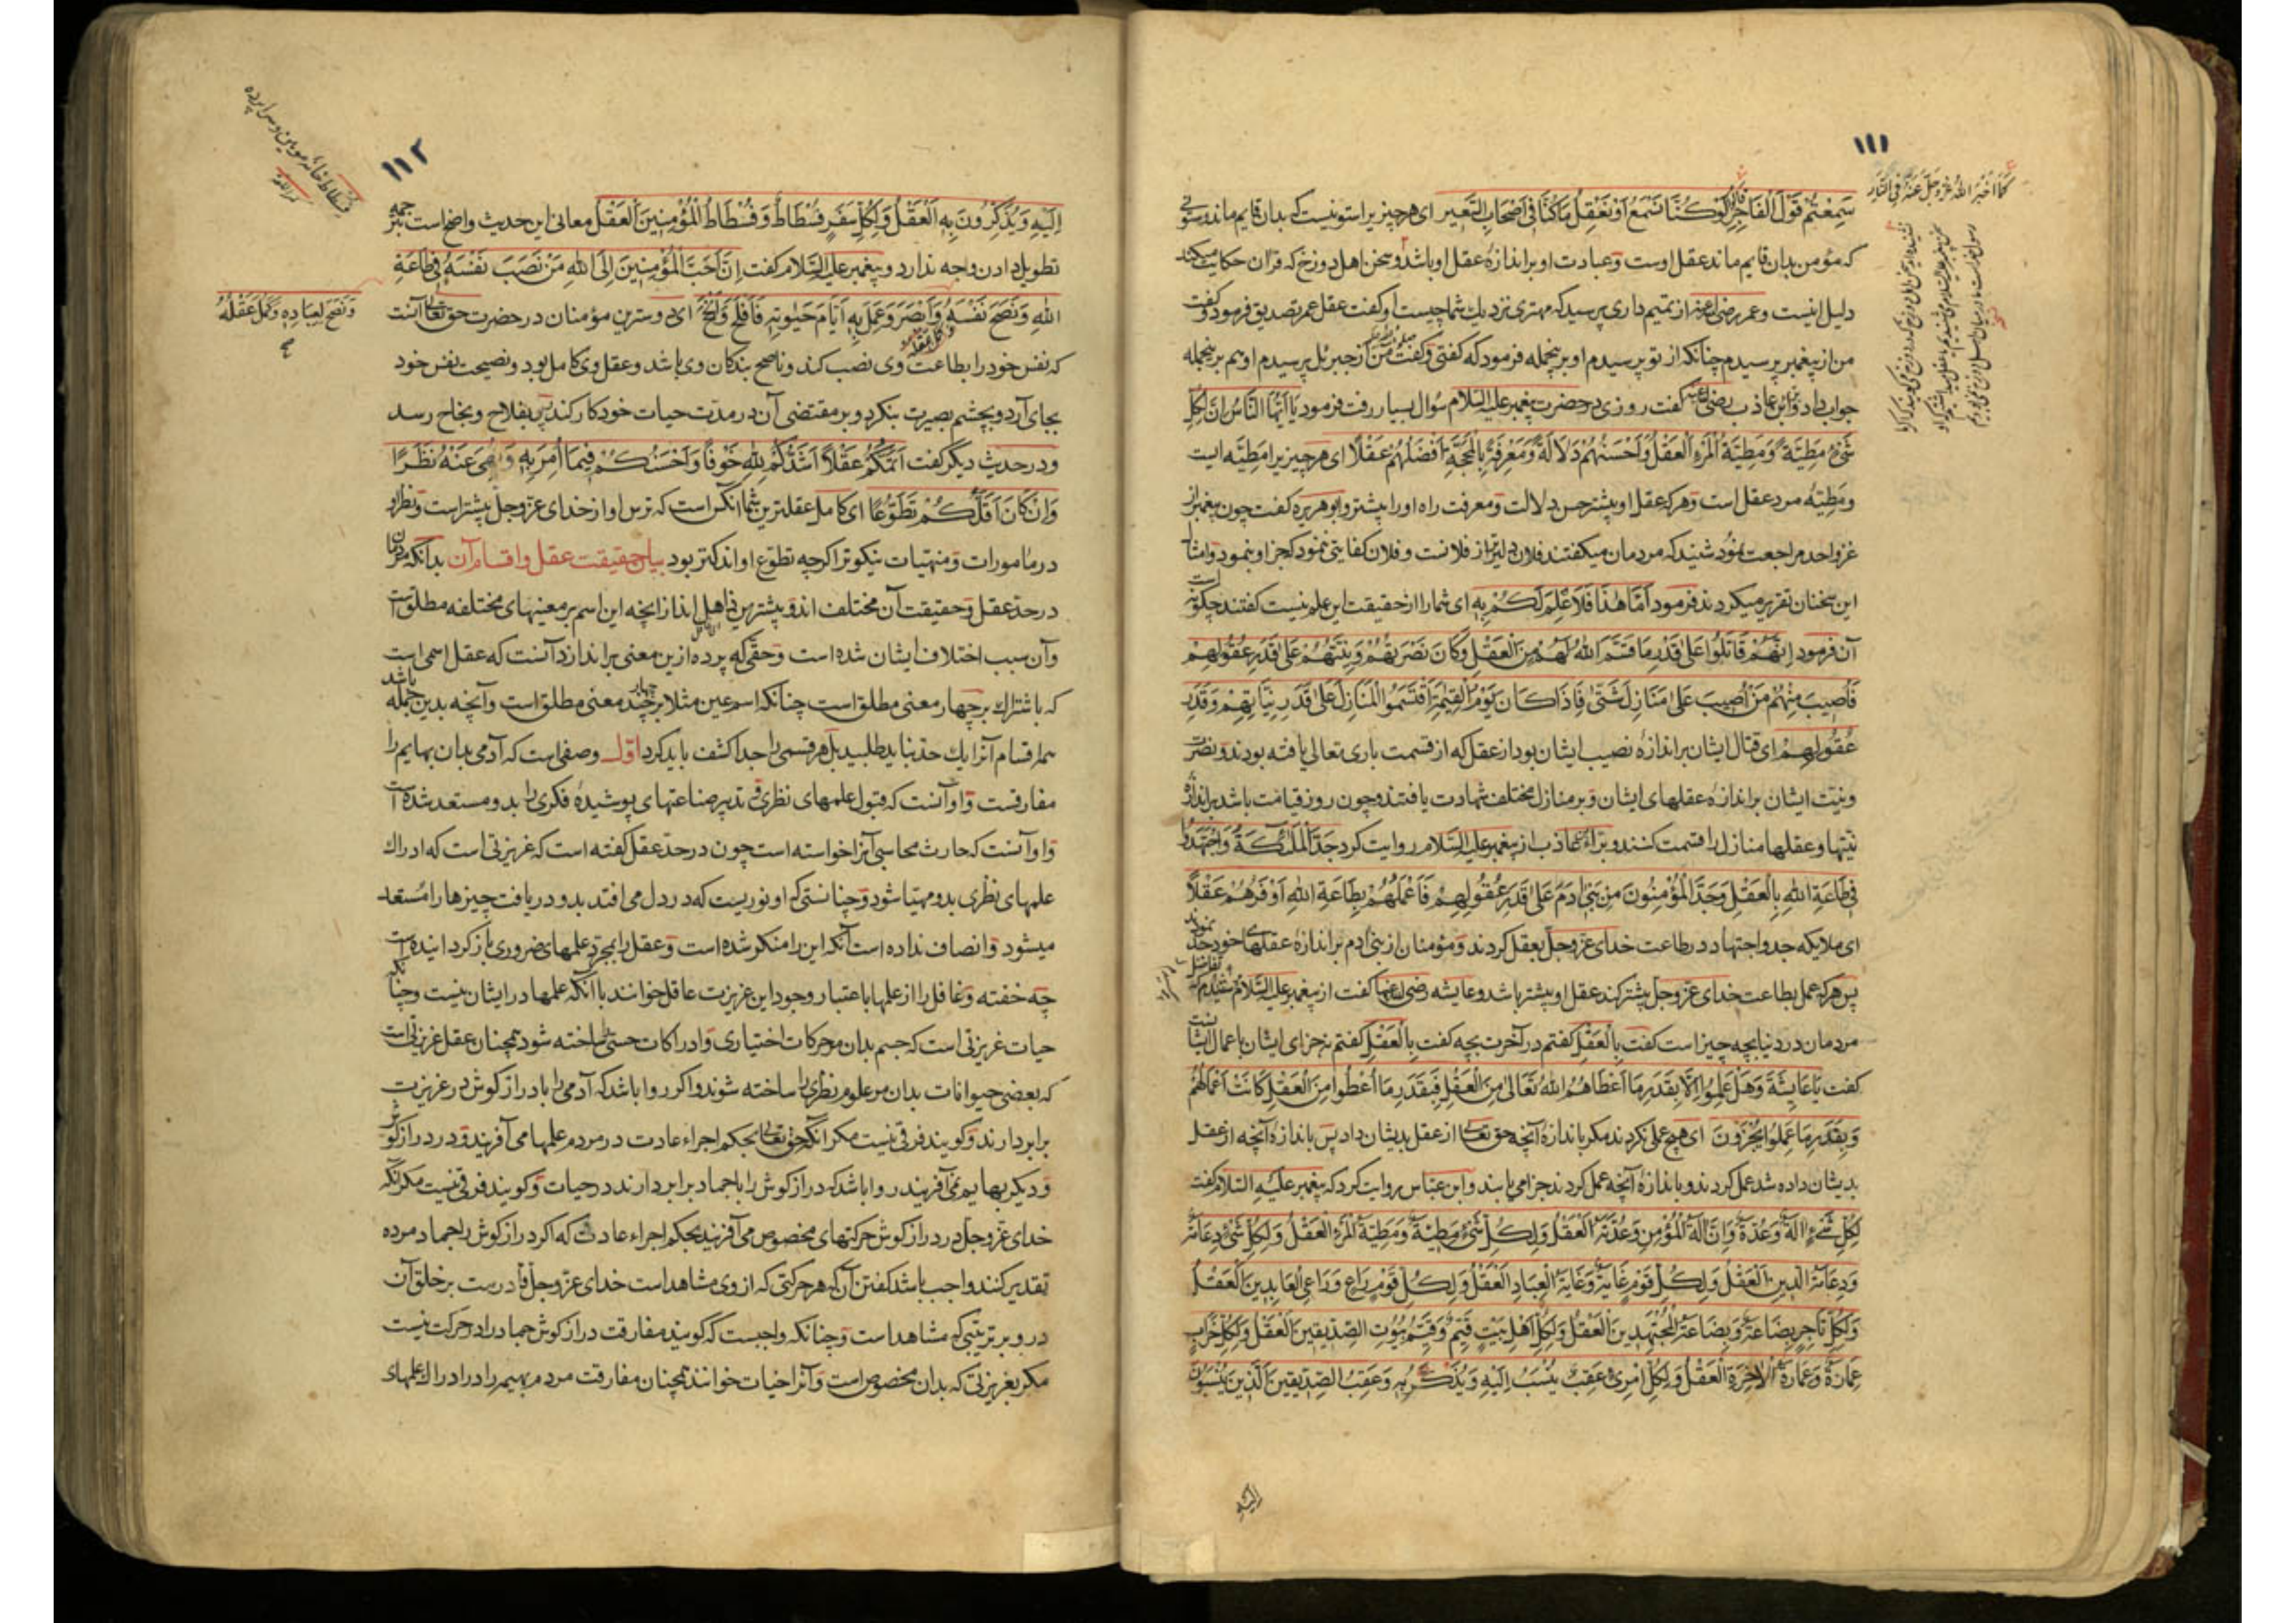 ١١١
كما أخبر الله عز و جل عنه في النار
سَمِعتُم قَولَ الفَاجِرِ لَو كُنَّا نَسمَعُ أَو نَعقِلُ مَا كُنَّا فِي أَصحَابِ السَّعِيرِ ای هر چیز یرا ستونیست که بدان قایم ماند و ستونی
که مؤمن بدان قایم ماند عقل اوست و عبادت او بر اندازهٔ عقل او باشد و سخن اهل دوزخ که قرآن حکایت میکند
دلیل اینست و عمر رضی الله عنه از تمیم داری پرسید که مهتری نزدیك شما چیست او کفت عقل عمر تصدیق فرمود و کفت
من از پیغمبر پرسیدم چنانکه از تو پرسیدم او برینجمله فرمود که کفتی و کفت من از جبرئل پرسیدم او هم برینجمله
جواب داد و براء بن عاذب رضی الله عنه کفت روزی در حضرت پیغمبر علیه السلام سؤال بسیار رفت فرمود یَا أَیُّهَا النَّاسُ إِنَّ لِکُلِّ
شَیْءٍ مَطِیَّةً وَمَطِیَّةُ المَرءِ العَقلُ وَأَحسَنُهُم دَلَالَةً وَمَعرِفَةً بِالحُجَّةِ أَفضَلُهُم عَقلًا ای هر چیز یرا مطیّه ایست
و مطیّه مرد عقل است و هر که عقل او بیشتر حسن دلالت و معرفت راه او را بیشتر و ابو هریره کفت چون پیغمبر از
غزو احد مراجعت نمود شنید که مردمان میکفتند فلان دلیرتر از فلانست و فلان کفایتی نمود که جز او ننمود و امثال
این سخنان تقریر میکردند فرمود أَمَّا هٰذَا فَلَا عِلمَ لَکُم بِهِ ای شما را از حقیقت این علم نیست کفتند چکونه است
آن فرمود إِنَّهُم قَاتَلُوا عَلٰی قَدرِ مَا قَسَمَ اللهُ لَهُم مِنَ العَقلِ وَکَانَ نَصرَتُهُم وَنِیَّتُهُم عَلٰی قَدَرِ عُقُولِهِم
فَأُصِیبَ مِنهُم مَن أُصِیبَ عَلٰی مَنَازِلَ شَتّٰی فَإِذَا کَانَ یَومُ القِیٰمَةِ اقتَسَمُوا المَنَازِلَ عَلٰی قَدَرِ نِیَّاتِهِم وَقَدرِ
عُقُولِهِم ای قتال ایشان بر اندازهٔ نصیب ایشان بود از عقل که از قسمت باری تعالی یافته بودند و نصرت
و نیت ایشان بر اندازهٔ عقلهای ایشان و بر منازل مختلف شهادت یافتند و چون روز قیامت باشد بر اندازهٔ
نیتها و عقلها منازل را قسمت کنند و براء عاذب از پیغمبر علیه السلام روایت کرد جَدَّ المَلٰئِکَةُ وَاجتَهَدُوا
فِی طَاعَةِ اللهِ بِالعَقلِ وَجَدَّ المُؤمِنُونَ مِن بَنِی اٰدَمَ عَلٰی قَدَرِ عُقُولِهِم فَأَعمَلُهُم بِطَاعَةِ اللهِ أَوفَرُهُم عَقلًا
ای ملایکه جد و اجتهاد در طاعت خدای عزّ و جلّ بعقل کردند و مؤمنان از بنی ادم بر اندازهٔ عقلهای خود جد نمودند
پس هر که عمل بطاعت خدای عزّ و جلّ بیشتر کند عقل او بیشتر باشد و عایشه رضی الله عنها کفت از پیغمبر علیه السلام پرسیدم که تفاضل
مردمان در دنیا بچه چیز است کفت بِالعَقلِ کفتم در آخرت بچه کفت بِالعَقلِ کفتم نه جزای ایشان باعمال ایشانست
کفت یَا عَایِشَةُ وَهَل عَمِلُوا إِلَّا بِقَدَرِ مَا أَعطَاهُمُ اللهُ تَعَالٰی مِنَ العَقلِ فَبِقَدَرِ مَا أُعطُوا مِنَ العَقلِ کَانَت أَعمَالُهُم
وَبِقَدَرِ مَا عَمِلُوا یُجزَونَ ای هیچ عملی نکردند مکر باندازهٔ آنچه حق تعالی از عقل بدیشان داد پس باندازهٔ آنچه از عقل
بدیشان داده شد عمل کردند و باندازهٔ آنچه عمل کردند جزا می یابند و ابن عبّاس روایت کرد که پیغمبر علیه السلام کفت
لِکُلِّ شَیْءٍ اٰلَةٌ وَعُدَّةٌ وَإِنَّ اٰلَةَ المُؤمِنِ وَعُدَّتَهُ العَقلُ وَلِکُلِّ شَیْءٍ مَطِیَّةٌ وَمَطِیَّةُ المَرءِ العَقلُ وَلِکُلِّ شَیْءٍ دِعَامَةٌ
وَدِعَامَةُ الدِّینِ العَقلُ وَلِکُلِّ قَومٍ غَایَةٌ وَغَایَةُ العِبَادِ العَقلُ وَلِکُلِّ قَومٍ رَاعٍ وَرَاعِی العَابِدِینَ العَقلُ
وَلِکُلِّ تَاجِرٍ بِضَاعَةٌ وَبِضَاعَةُ المُجتَهِدِینَ العَقلُ وَلِکُلِّ أَهلِ بَیتٍ قَیِّمٌ وَقَیِّمُ بُیُوتِ الصِّدِّیقِینَ العَقلُ وَلِکُلِّ خَرَابٍ
عِمَارَةٌ وَعِمَارَةُ الاٰخِرَةِ العَقلُ وَلِکُلِّ امرِئٍ عَقِبٌ یُنسَبُ إِلَیهِ وَیُذکَرُ بِهِ وَعَقِبُ الصِّدِّیقِینَ الَّذِینَ یُنسَبُونَ
الیه
١١٢
فسطاط خانهٔ مویین و سراپرده
إِلَیهِ وَیُذکَرُونَ بِهِ العَقلُ وَلِکُلِّ سَفَرٍ فُسطَاطٌ وَفُسطَاطُ المُؤمِنِینَ العَقلُ معانی این حدیث واضح است ترجمه
تطویل دادن وجه ندارد و پیغمبر علیه السلام کفت إِنَّ أَحَبَّ المُؤمِنِینَ إِلَی اللهِ مَن نَصَبَ نَفسَهُ فِی طَاعَةِ
اللهِ وَنَصَحَ نَفسَهُ وَأَبصَرَ وَعَمِلَ بِهِ أَیَّامَ حَیٰوتِهِ فَأَفلَحَ وَأَنجَحَ ای دوسترین مؤمنان در حضرت حق تعالی آنست
وَنَصَحَ لِعِبَادِهِ وَکَمُلَ عَقلُهُ
که نفس خود را بطاعت وی نصب کند و ناصح بندکان وی باشد و عقل وی کامل بود و نصیحت نفس خود
بجای آرد و بچشم بصیرت بنکرد و بر مقتضی آن در مدّت حیات خود کار کند پس بفلاح و بنجاح رسد
و در حدیث دیگر کفت أَتَمُّکُم عَقلًا أَشَدُّکُم لِلّٰهِ خَوفًا وَأَحسَنُکُم فِیمَا أُمِرَ بِهِ وَنُهِیَ عَنهُ نَظَرًا
وَإِن کَانَ أَقَلَّکُم تَطَوُّعًا ای کامل عقلترین شما آنکس است که ترس او از خدای عزّ و جلّ بیشتر است و نظر او
در مأمورات و منهیّات نیکوتر اکرچه تطوّع او اندکتر بود بیان حقیقت عقل و اقسام آن بدانکه مردمان
در حدّ عقل و حقیقت آن مختلف اند و بیشترین ذاهل اند از انچه این اسم بر معنیهای مختلفه مطلق است
و آن سبب اختلاف ایشان شده است و حقّی که پرده ازین معنی براندازد آنست که عقل اسمی است
که باشتراك بر چهار معنی مطلق است چنانکه اسم عین مثلا بر چند معنی مطلق است و آنچه بدین جمله باشد
همه اقسام آنرا یك حدّ نباید طلبید بل هر قسمی را جدا کشف باید کرد اوّل وصفی است که آدمی بدان بهایم را
مفارقست و او آنست که قبول علمهای نظری و تدبیر صناعتهای پوشیدهٔ فکری را بدو مستعد شده است
و او آنست که حارث محاسبی آنرا خواسته است چون در حدّ عقل کفته است که غریزتی است که ادراك
علمهای نظری بدو مهیّا شود و چنانستی که او نوریست که در دل می افتد بدو دریافت چیزها را مستعد
میشود و انصاف نداده است آنکه این را منکر شده است و عقل را بمجرّد علمهای ضروری باز کردانیده است
چه خفته و غافل را از علمها باعتبار وجود این غریزت عاقل خوانند با آنکه علمها در ایشان نیست و چنانکه
حیات غریزتی است که جسم بدان مر حرکات اختیاری و ادراکات حسّی را ساخته شود همچنان عقل غریزتی است
که بعضی حیوانات بدان مر علوم نظری را ساخته شوند و اکر روا باشد که آدمی را با دراز کوش در غریزت
برابر دارند و کویند فرقی نیست مکر آنکه حق تعالی بحکم اجراء عادت در مردم علمها می آفریند و در دراز کوش
و دیکر بهایم نمی آفریند روا باشد که دراز کوش را با جماد برابر دارند در حیات و کویند فرقی نیست مکر آنکه
خدای عزّ و جلّ در دراز کوش حرکتهای مخصوص می آفریند بحکم اجراء عادت که اکر دراز کوش را جماد مرده
تقدیر کنند واجب باشد کفتن آن که هر حرکتی که از وی مشاهد است خدای عزّ و جلّ قادرست بر خلق آن
درو بر ترتیبی که مشاهد است و چنانکه واجبست که کویند مفارقت دراز کوش جماد را در حرکت نیست
مکر بغریزتی که بدان مخصوص است و آنرا حیات خوانند همچنان مفارقت مردم بهیمه را در ادراك علمهای